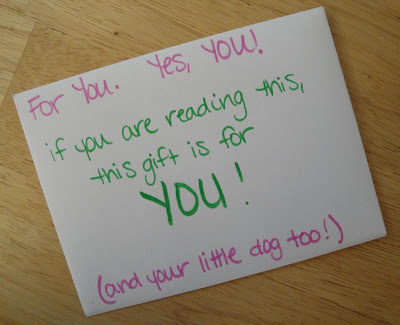 For You. Yes, YOU!
if you are reading this,
this gift is for
YOU!
(and your little dog too!)